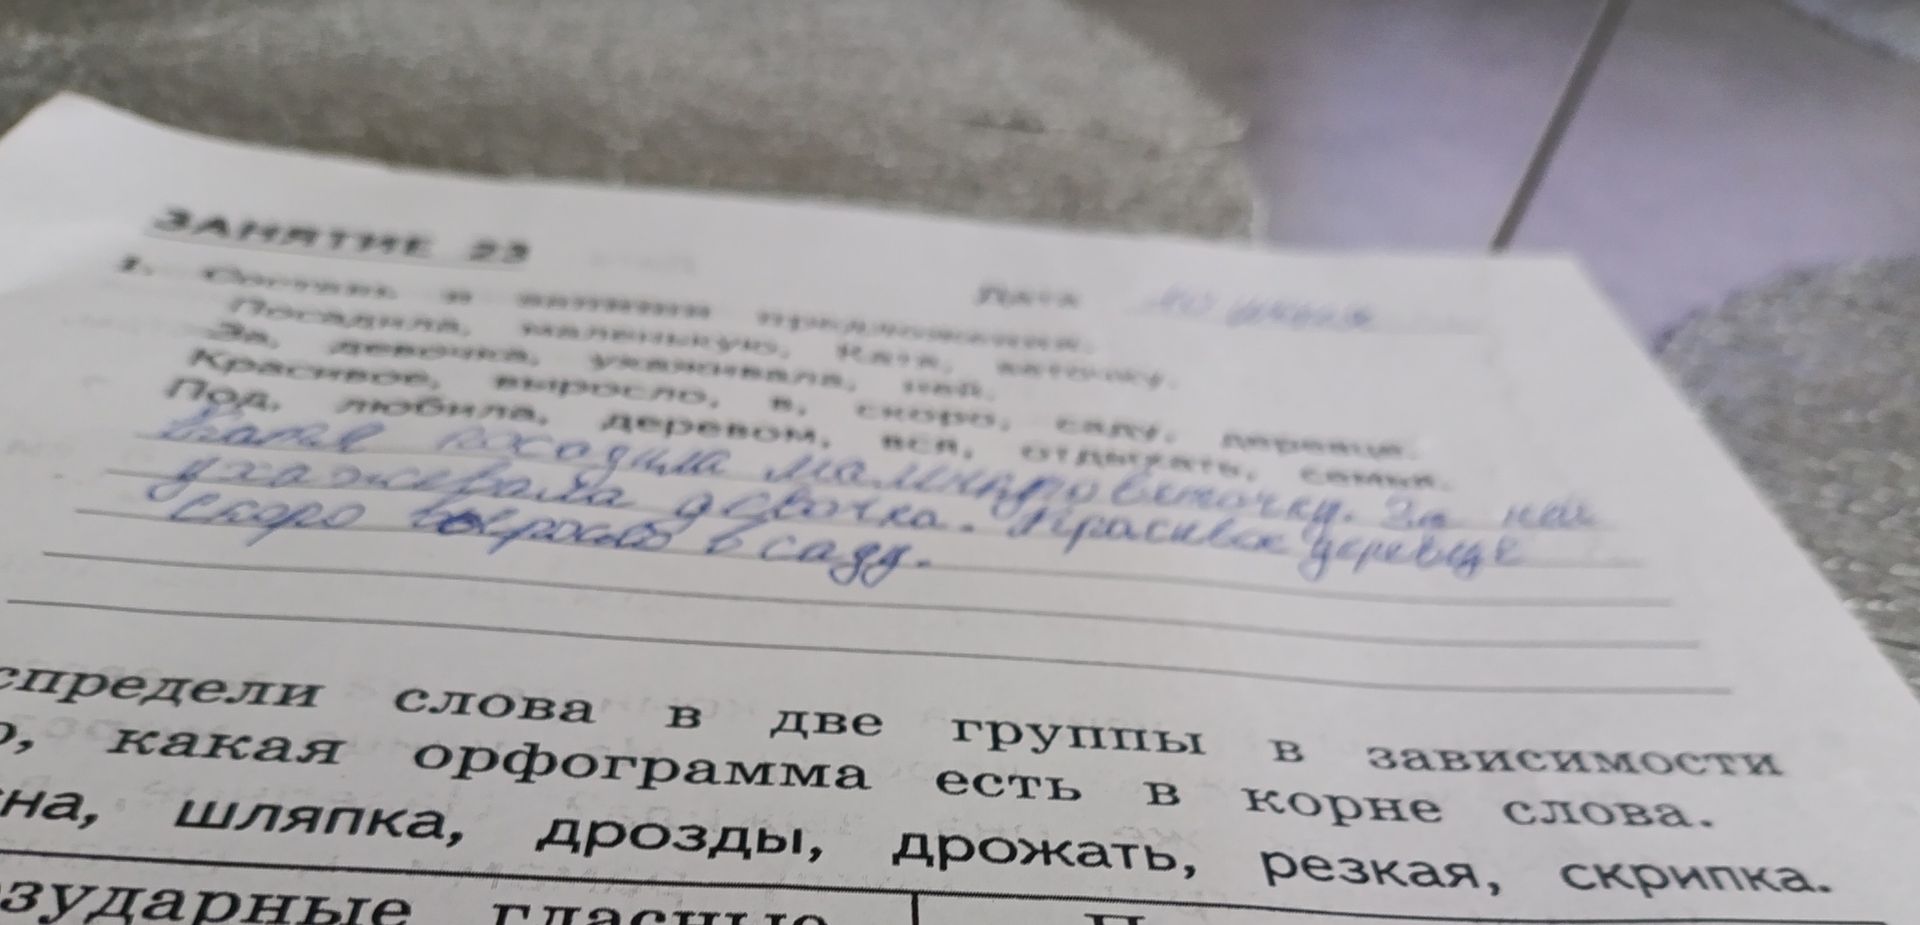 ЗАНЯТИЕ 23
Дата
1. Составь и запиши предложения.
Посадила, маленькую, Катя, веточку.
За, девочка, ухаживала, ней.
Красивое, выросло, в, скоро, саду, деревце.
Под, любила, деревом, вся, отдыхать, семья.
посадила веточку. За ней
ухаживала девочка. Красивое деревце
скоро выросло в саду.
спредели слова в две группы в зависимости
о, какая орфограмма есть в корне слова.
на, шляпка, дрозды, дрожать, резкая, скрипка.
зударные гласные